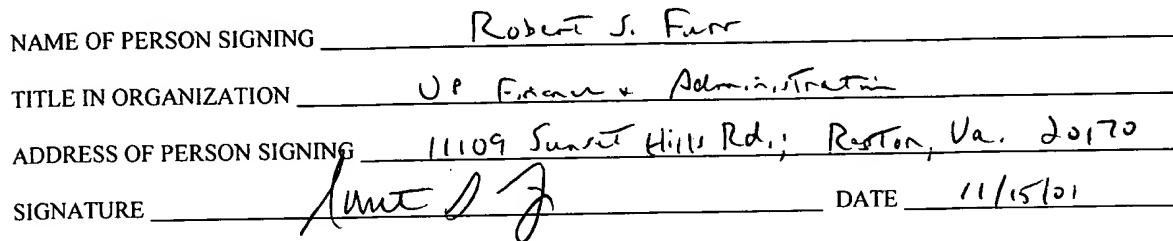 NAME OF PERSON SIGNING Robert S. Furr
TITLE IN ORGANIZATION VP Finance & Administration
ADDRESS OF PERSON SIGNING 11109 Sunset Hills Rd.; Reston, Va. 20170
SIGNATURE DATE 11/15/01